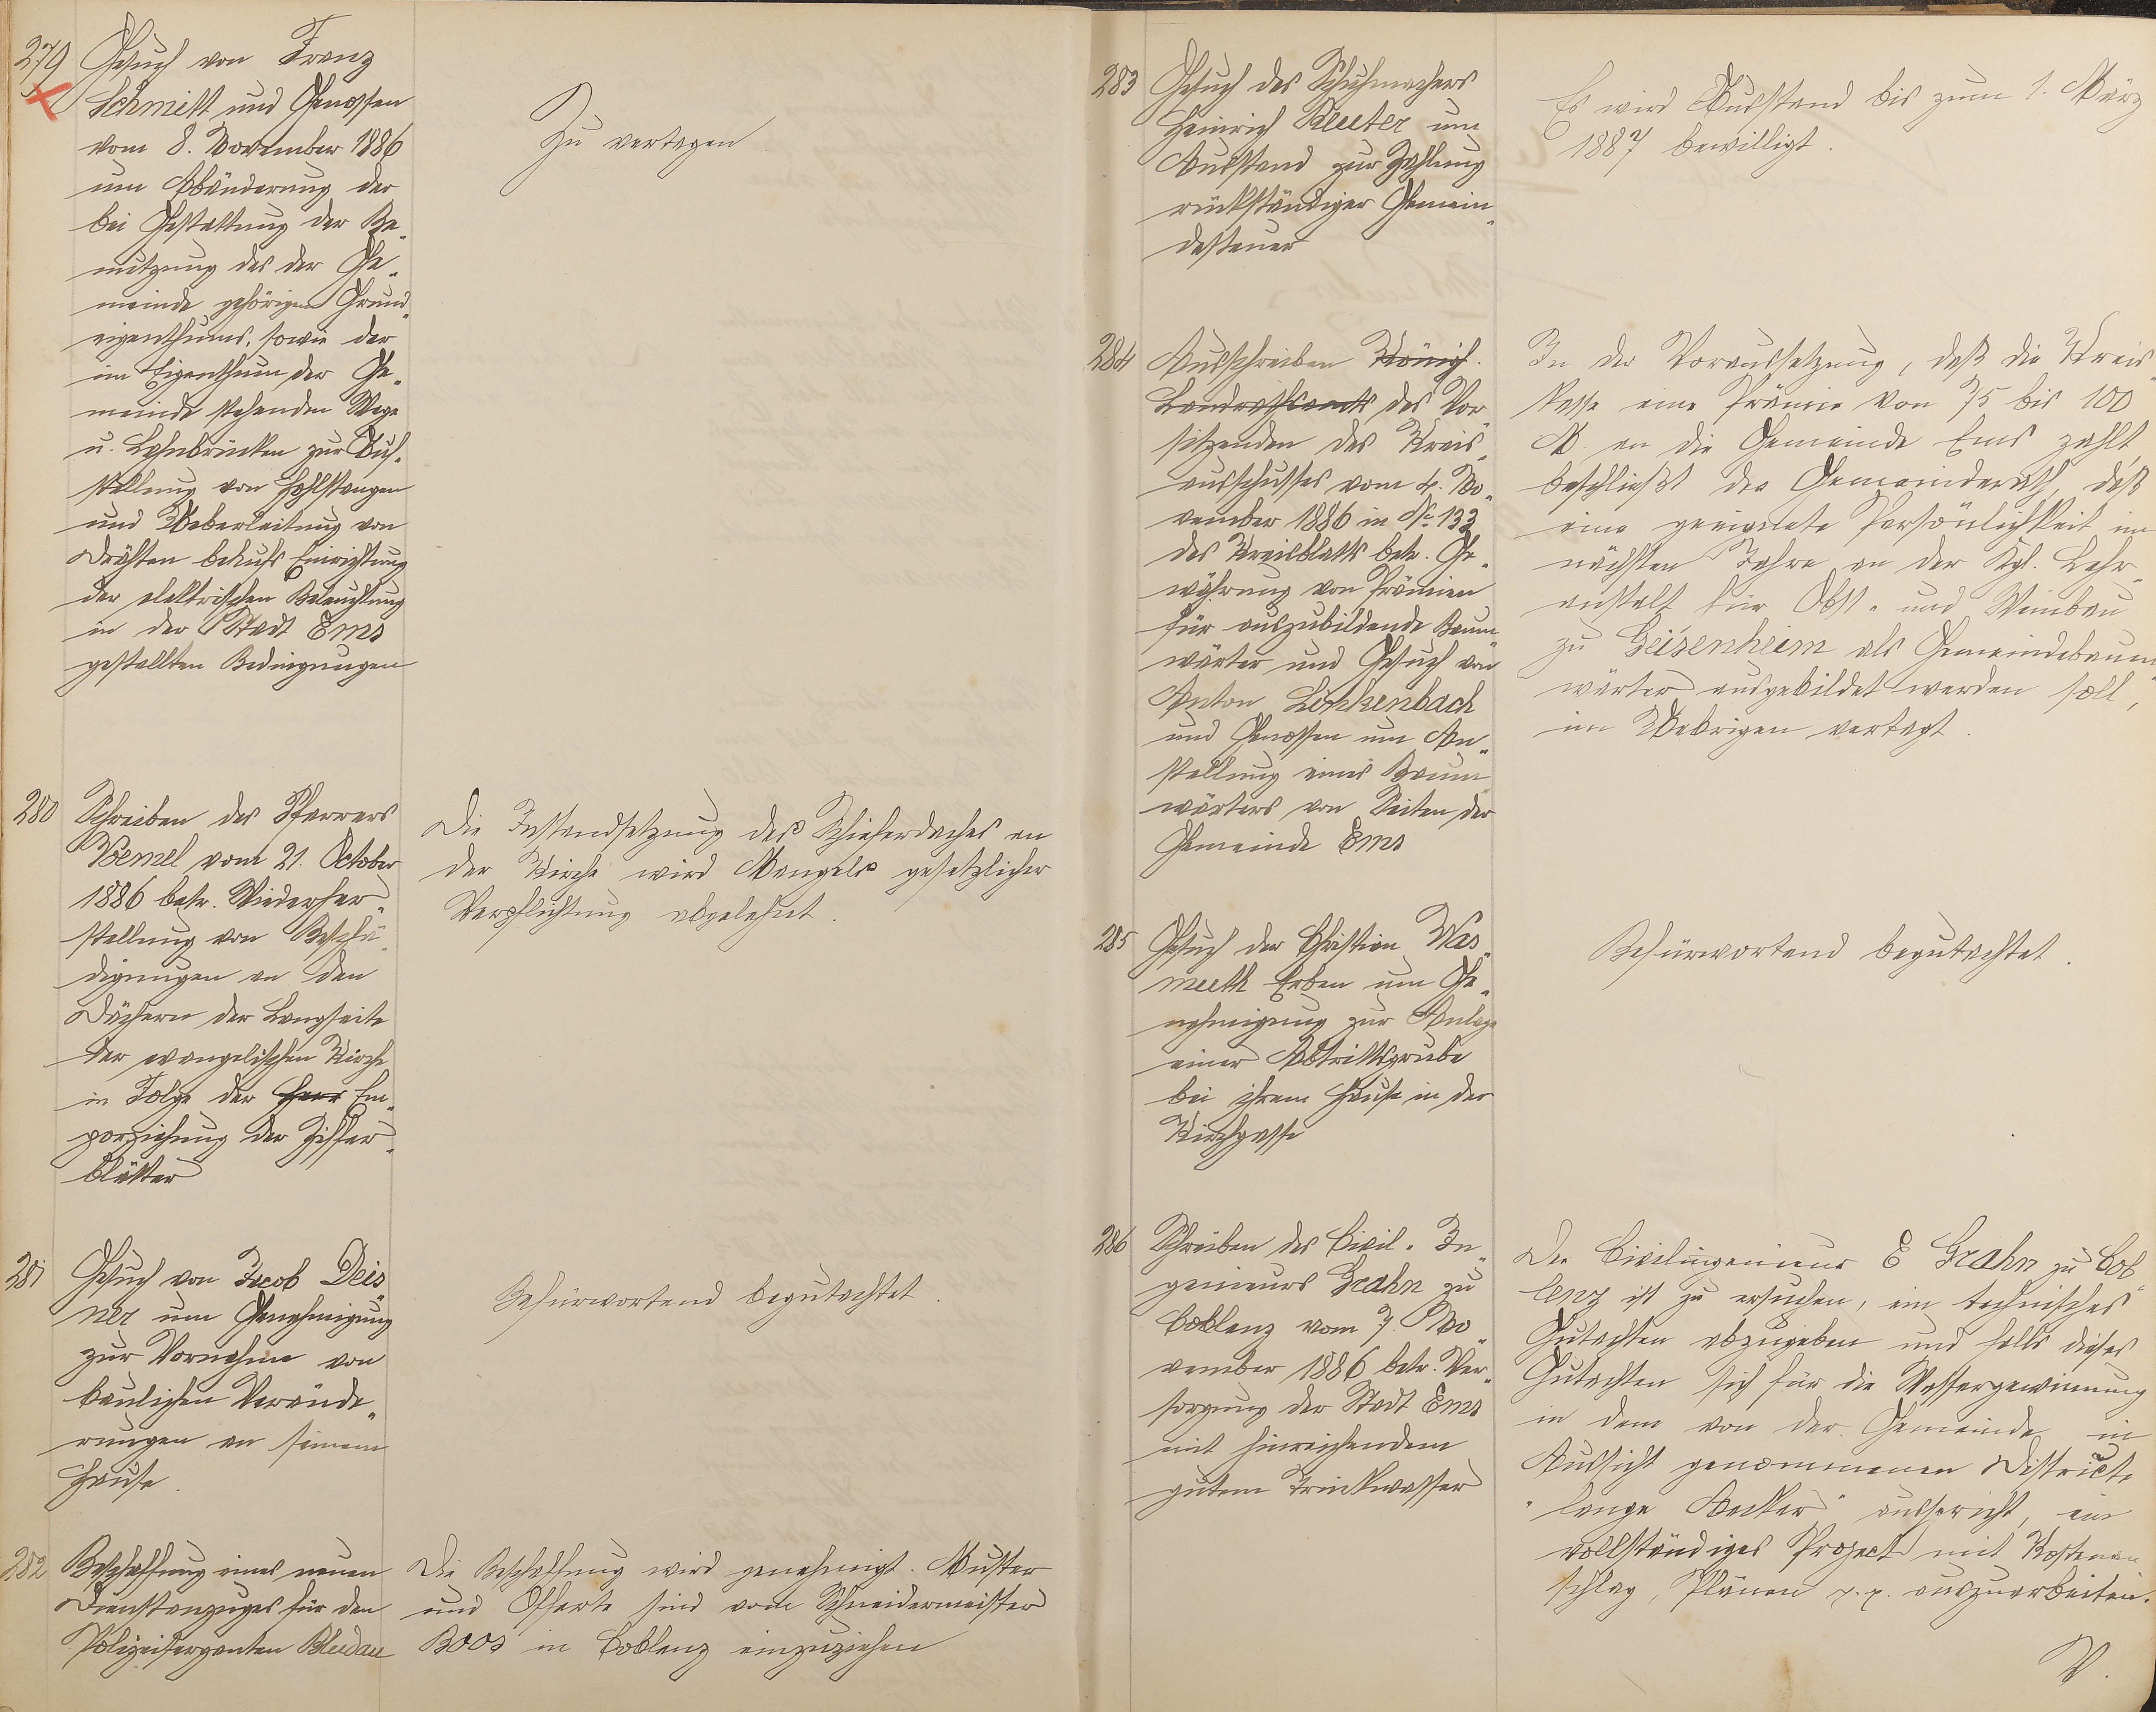 279
Gesuch von Franz
Schmitt und Genossen
vom 8. November 1886
um Abänderung der
bei Gestattung der Be„
nutzung des der Ge„
meinde gehörigen Grund„
eigenthums, sowie der
im Eigenthum der Ge„
meinde stehenden Wege
u. Lahnbrücken zur Auf„
stellung von Hohlstangen
und Ueberleitung von
Drähten behufs Einrichtung
der elektrischen Beleuchtung
in der Stadt Ems
gestellten Bedingungen
Zu vertagen
280
Schreiben des Pfarrers
Vömel vom 21. October
1886 betr. Wiederher„
stellung von Beschä„
digungen an den
Dächern der Langseite
der evangelischen Kirche
in Folge der Em„
porziehung der Ziffer„
blätter
Die Instandsetzung des Schieferdaches an
der Kirche wird Mangels gesetzlicher
Verpflichtung abgelehnt.
281
Gesuch von Jacob Deis„
ner um Genehmigung
zur Vornahme von
baulichen Verände„
rungen an seinem
Hause.
Befürwortend begutachtet.
282
Beschaffung eines neuen
Dienstanzuges für den
Polizeisergenten Bludau
Die Beschaffung wird genehmigt. Muster
und Offerte sind vom Schneidermeister
Boos in Coblenz einzuziehen
283
Gesuch des Schuhmachers
Heinrich Reuter um
Ausstand zur Zahlung
rückständiger Gemein„
desteuer
Es wird Ausstand bis zum 1. März
1887 bewilligt.
284
Ausschreiben Königl.
Landrathsamts des Vor„
sitzenden des Kreis„
ausschusses vom 4. No„
vember 1886 in No 133
des Kreisblatts betr. Ge„
währung von Prämien
für auszubildende Baum
wärter und Gesuch von
Anton Linkenbach
und Genossen um An„
stellung eines Baum
wärters von Seiten der
Gemeinde Ems
In der Voraussetzung, daß die Kreis„
kasse eine Prämie von 75 bis 100
M. an die Gemeinde Ems zahlt,
beschließt der Gemeinderath, daß
eine geeignete Persönlichkeit im
nächsten Jahre an der Kgl. Lehr„
anstalt für Obst- und Weinbau
zu Geisenheim als Gemeindebaum„
wärter ausgebildet werden soll,
im Uebrigen vertagt.
285
Gesuch der Christian Was„
muth Erben um Ge„
nehmigung zur Anlage
einer Abtrittsgrube
bei ihrem Hause in der
Kirchgasse
Befürwortend begutachtet.
286
Schreiben des Civil-In„
genieurs Grahn zu
Coblenz vom 7. No„
vember 1886 betr. Ver„
sorgung der Stadt Ems
mit hinreichendem
gutem Trinkwasser
Der Civilingenieur E Grahn zu Cob„
lenz ist zu ersuchen, ein technisches
Gutachten abzugeben und falls dieses
Gutachten sich für die Wassergewinnung
in dem von der Gemeinde in
Aussicht genommenen Districte
"lange Aecker" ausspricht, ein
vollständiges Project mit Kostenan
schlag, Plänen p. p. auszuarbeiten.
V.